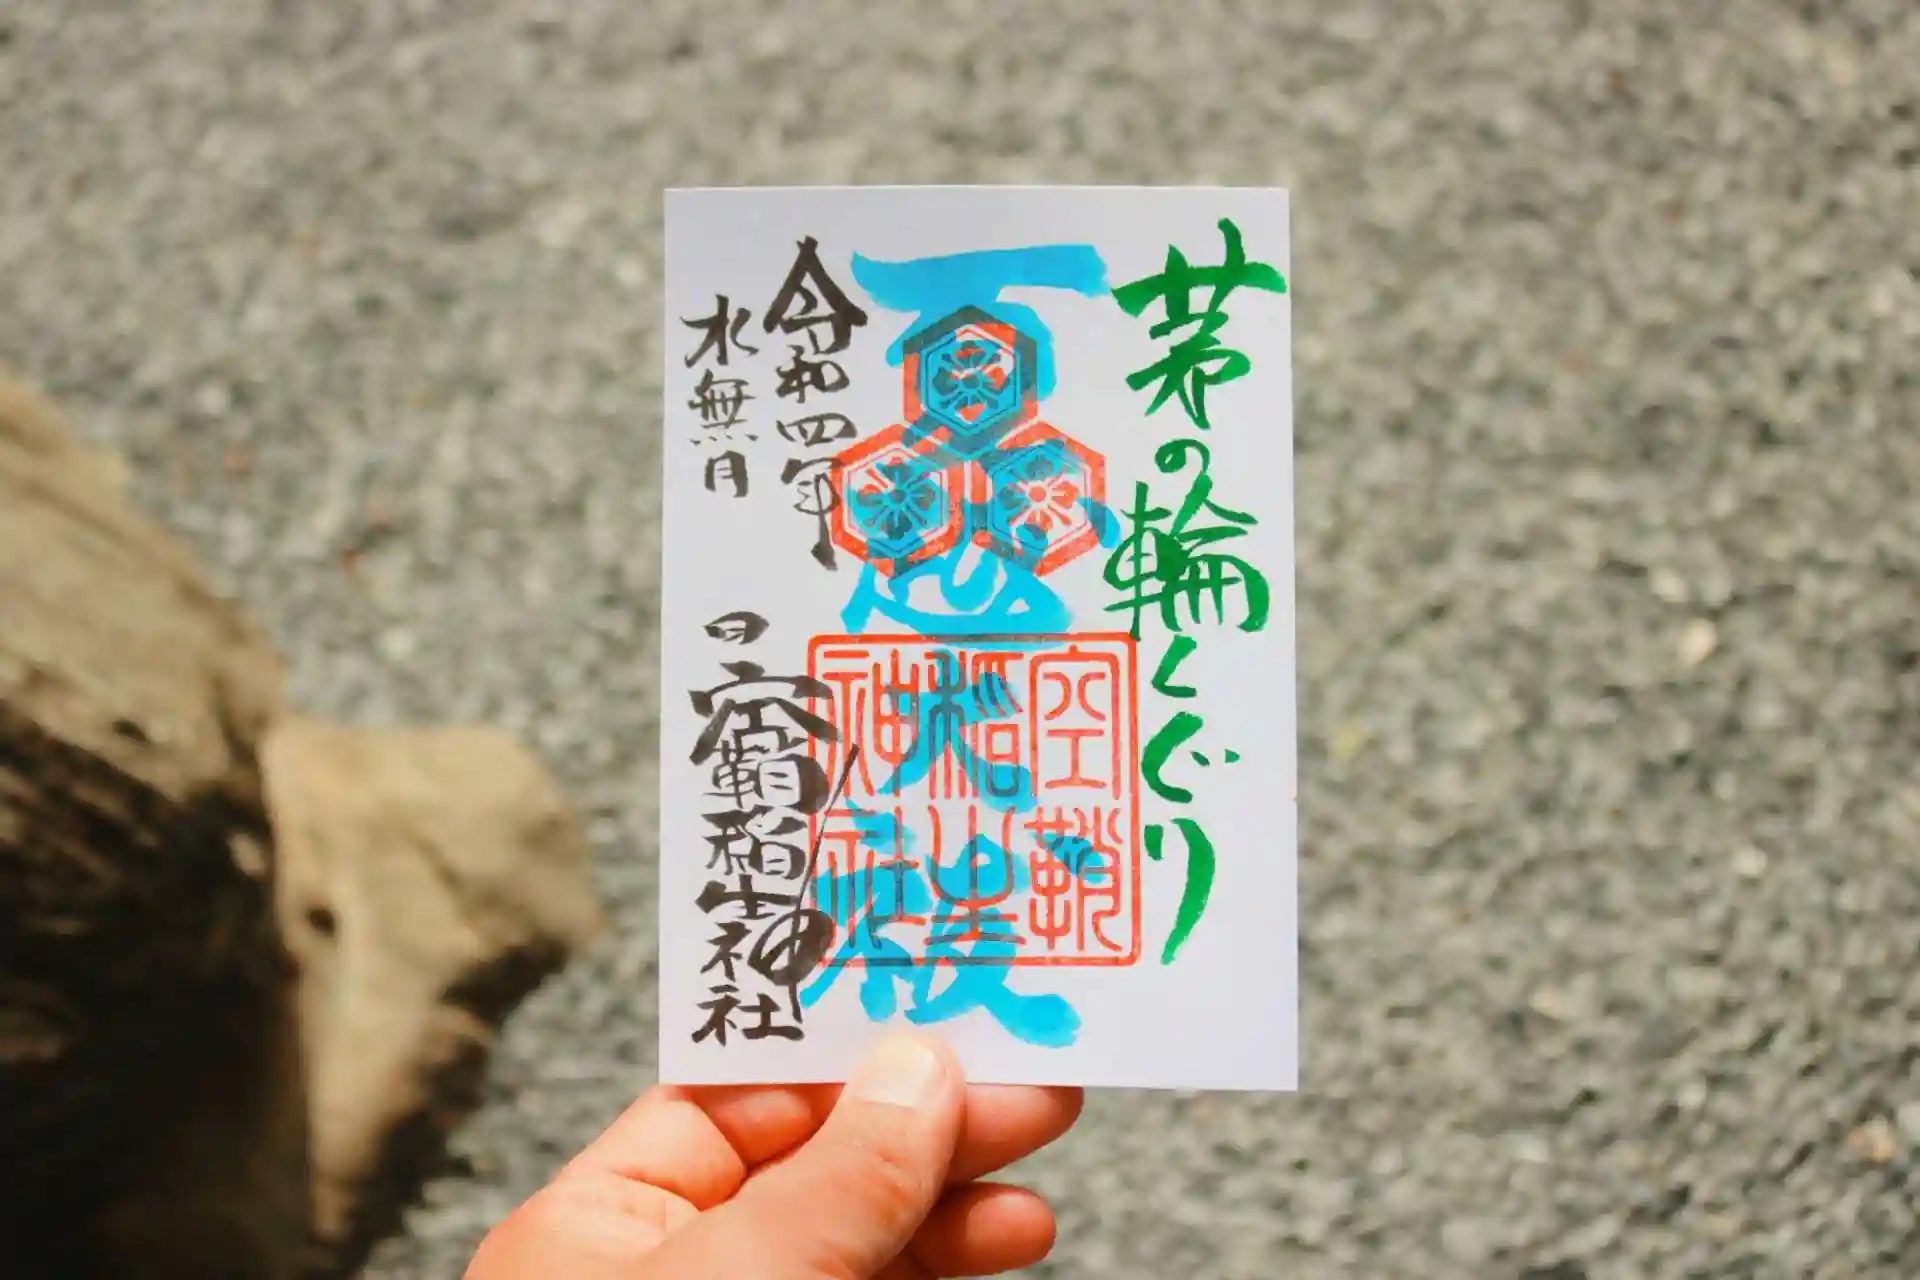 茅の輪くぐり
夏越大祓
空鞘
稲生
神社
令和四年
水無月 日
空鞘稲生神社